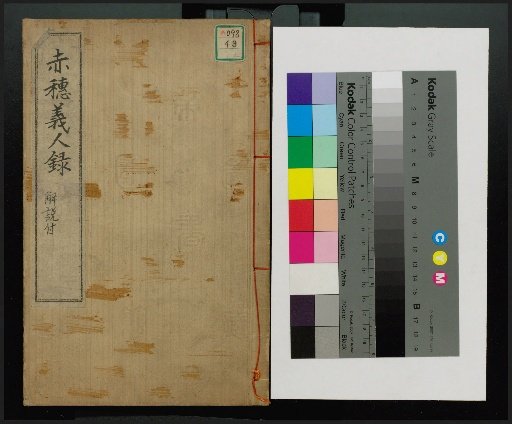 赤穂義人録
解説付
098
43
Kodak Color Control Patches
Blue
Cyan
Green
Yellow
Red
Magenta
White
3/Color
Black
Kodak Gray Scale
A 1 2 3 4 5 6 M 8 9 10 11 12 13 14 15 B 17 18 19
C
Y
M